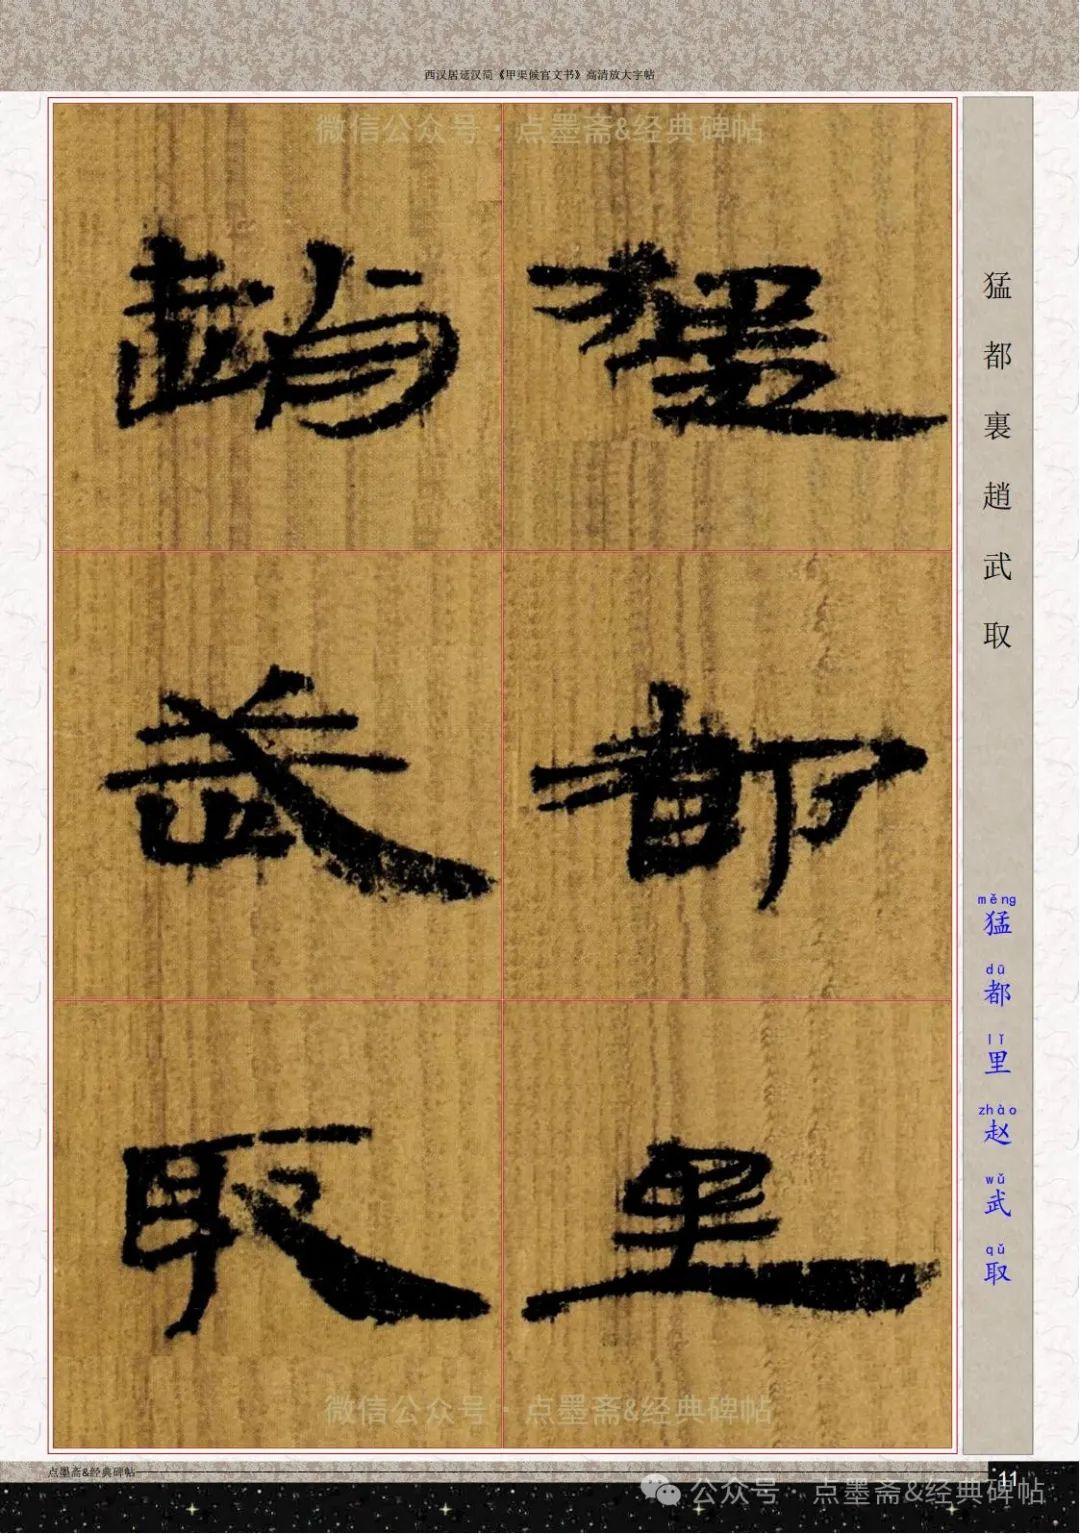 西汉居延汉简《甲渠候官文书》高清放大字帖
微信公众号·点墨斋&经典碑帖
猛都里
趙武取
猛都裏趙武取
měng dū lǐ zhào wǔ qǔ
猛都里赵武取
微信公众号·点墨斋&经典碑帖
点墨斋&经典碑帖
11
公众号·点墨斋&经典碑帖